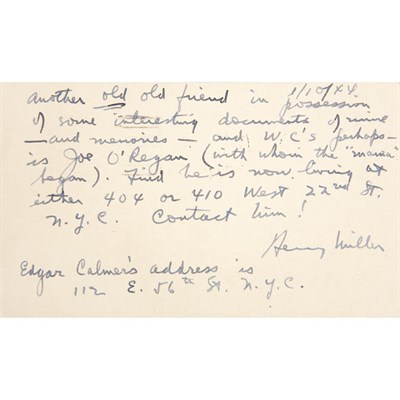 1/10/44
Another old old friend in possession
of some interesting documents of mine
— and memories — and W.C's perhaps —
is Joe O'Regan (with whom the "mania"
began). Find he is now living at
either 404 or 410 West 22nd St.
N.Y.C. Contact him!
Henry Miller
Edgar Calmer's address is
112 E. 56th St. N.Y.C.